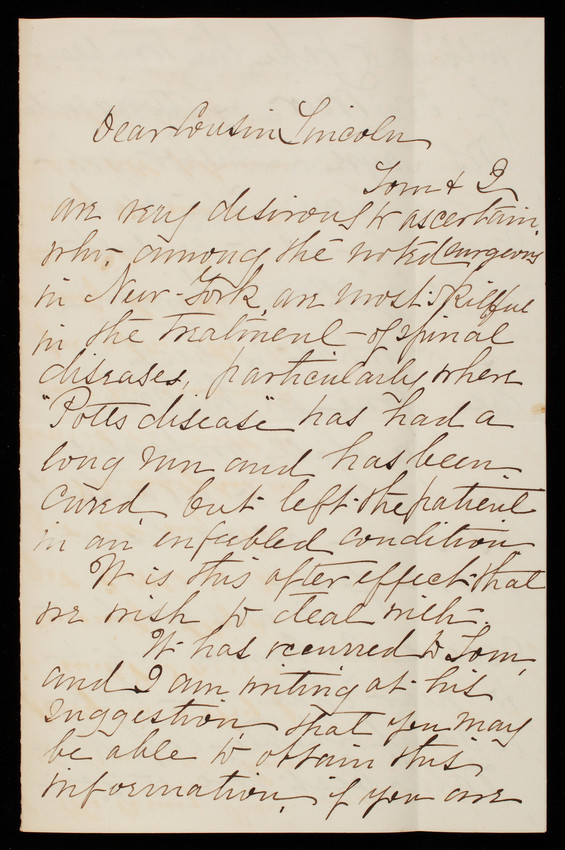 Dear Cousin Lincoln
Tom & I
are very desirous to ascertain,
who, among the noted surgeons
in New-York, are most skilful
in the treatment of spinal
diseases, particularly where
"Potts disease" has had a
long run and has been
cured, but left the patient
in an enfeebled condition
It is this after effect that
we wish to deal with.
It has occurred to Tom,
and I am writing at his
suggestion, that you may
be able to obtain this
information, if you are